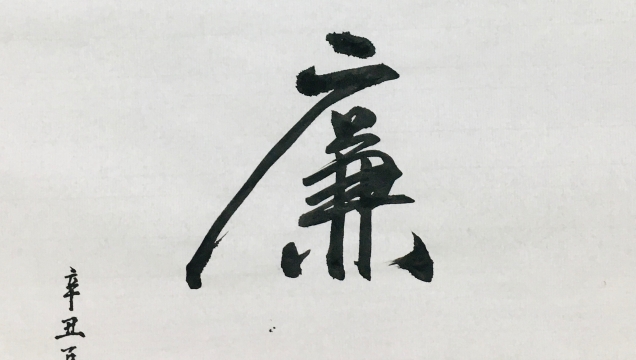 廉
辛丑